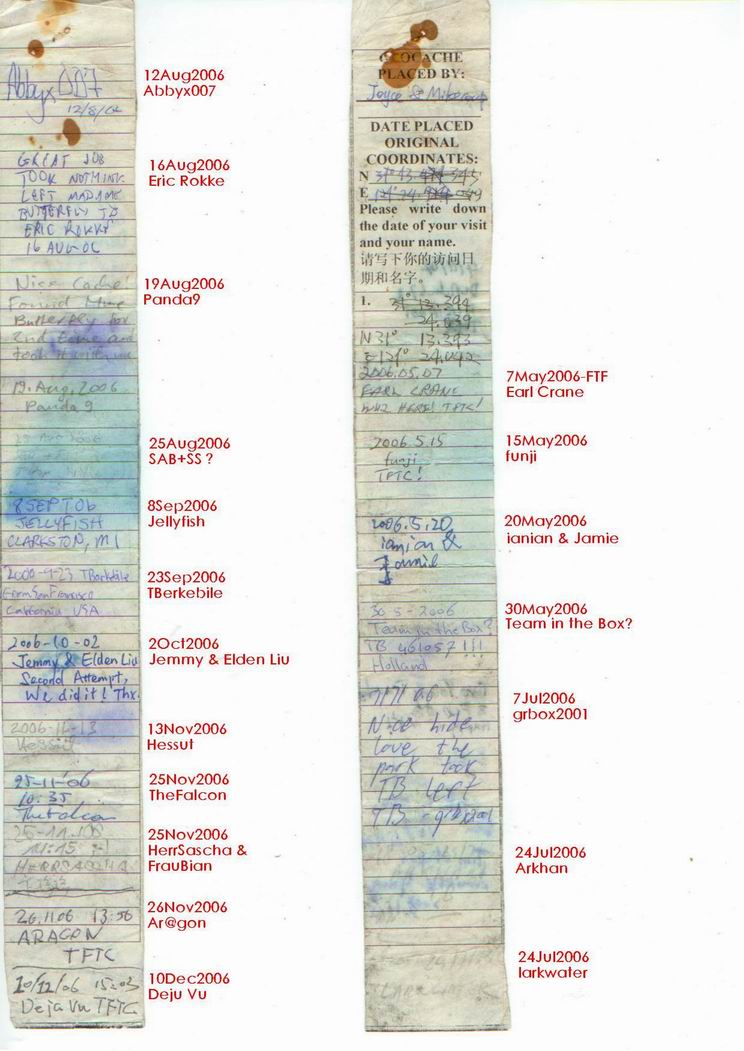 Abbyx007
12/8/06
12Aug2006
Abbyx007
GREAT JOB
TOOK NOTHING
LEFT MADAME
BUTTERFLY TB
ERIC ROKKE
16 AUG 06
16Aug2006
Eric Rokke
Nice Cache!
Found Mme
Butterfly for
2nd time and
took it with me
19. Aug, 2006
Panda 9
19Aug2006
Panda9
25Aug2006
SAB+SS ?
8 SEPT 06
JELLYFISH
CLARKSTON, MI
8Sep2006
Jellyfish
2006-9-23 TBerkebile
From San Francisco
California USA
23Sep2006
TBerkebile
2006-10-02
Jemmy & Elden Liu
Second Attempt,
We did it! Thx.
2Oct2006
Jemmy & Elden Liu
2006-11-13
Hessut
13Nov2006
Hessut
25-11-06
10:35
TheFalcon
25Nov2006
TheFalcon
25-11-06
11:15
HERRSASCHA
25Nov2006
HerrSascha &
FrauBian
26.11.06 13:56
ARAGON
TFTC
26Nov2006
Ar@gon
10/12/06 15:03
Deja Vu TFTC
10Dec2006
Deju Vu
GEOCACHE
PLACED BY:
Joyce &
DATE PLACED
ORIGINAL
COORDINATES:
N 31° 13.
E 121° 24.
Please write down
the date of your visit
and your name.
请写下你的访问日
期和名字。
1. 31° 13.394
24.039
N 31° 13.393
E 121° 24.042
2006.05.07
EARL CRANE
WUZ HERE! TFTC!
7May2006-FTF
Earl Crane
2006.5.15
funji
TFTC!
15May2006
funji
2006.5.20
ianian &
Jamie
20May2006
ianian & Jamie
30-5-2006
Team in the Box?
TB 461057!!!
Holland
30May2006
Team in the Box?
7/7/06
Nice hide
love the
park took
TB left
TB
7Jul2006
grbox2001
24Jul2006
Arkhan
24Jul2006
larkwater